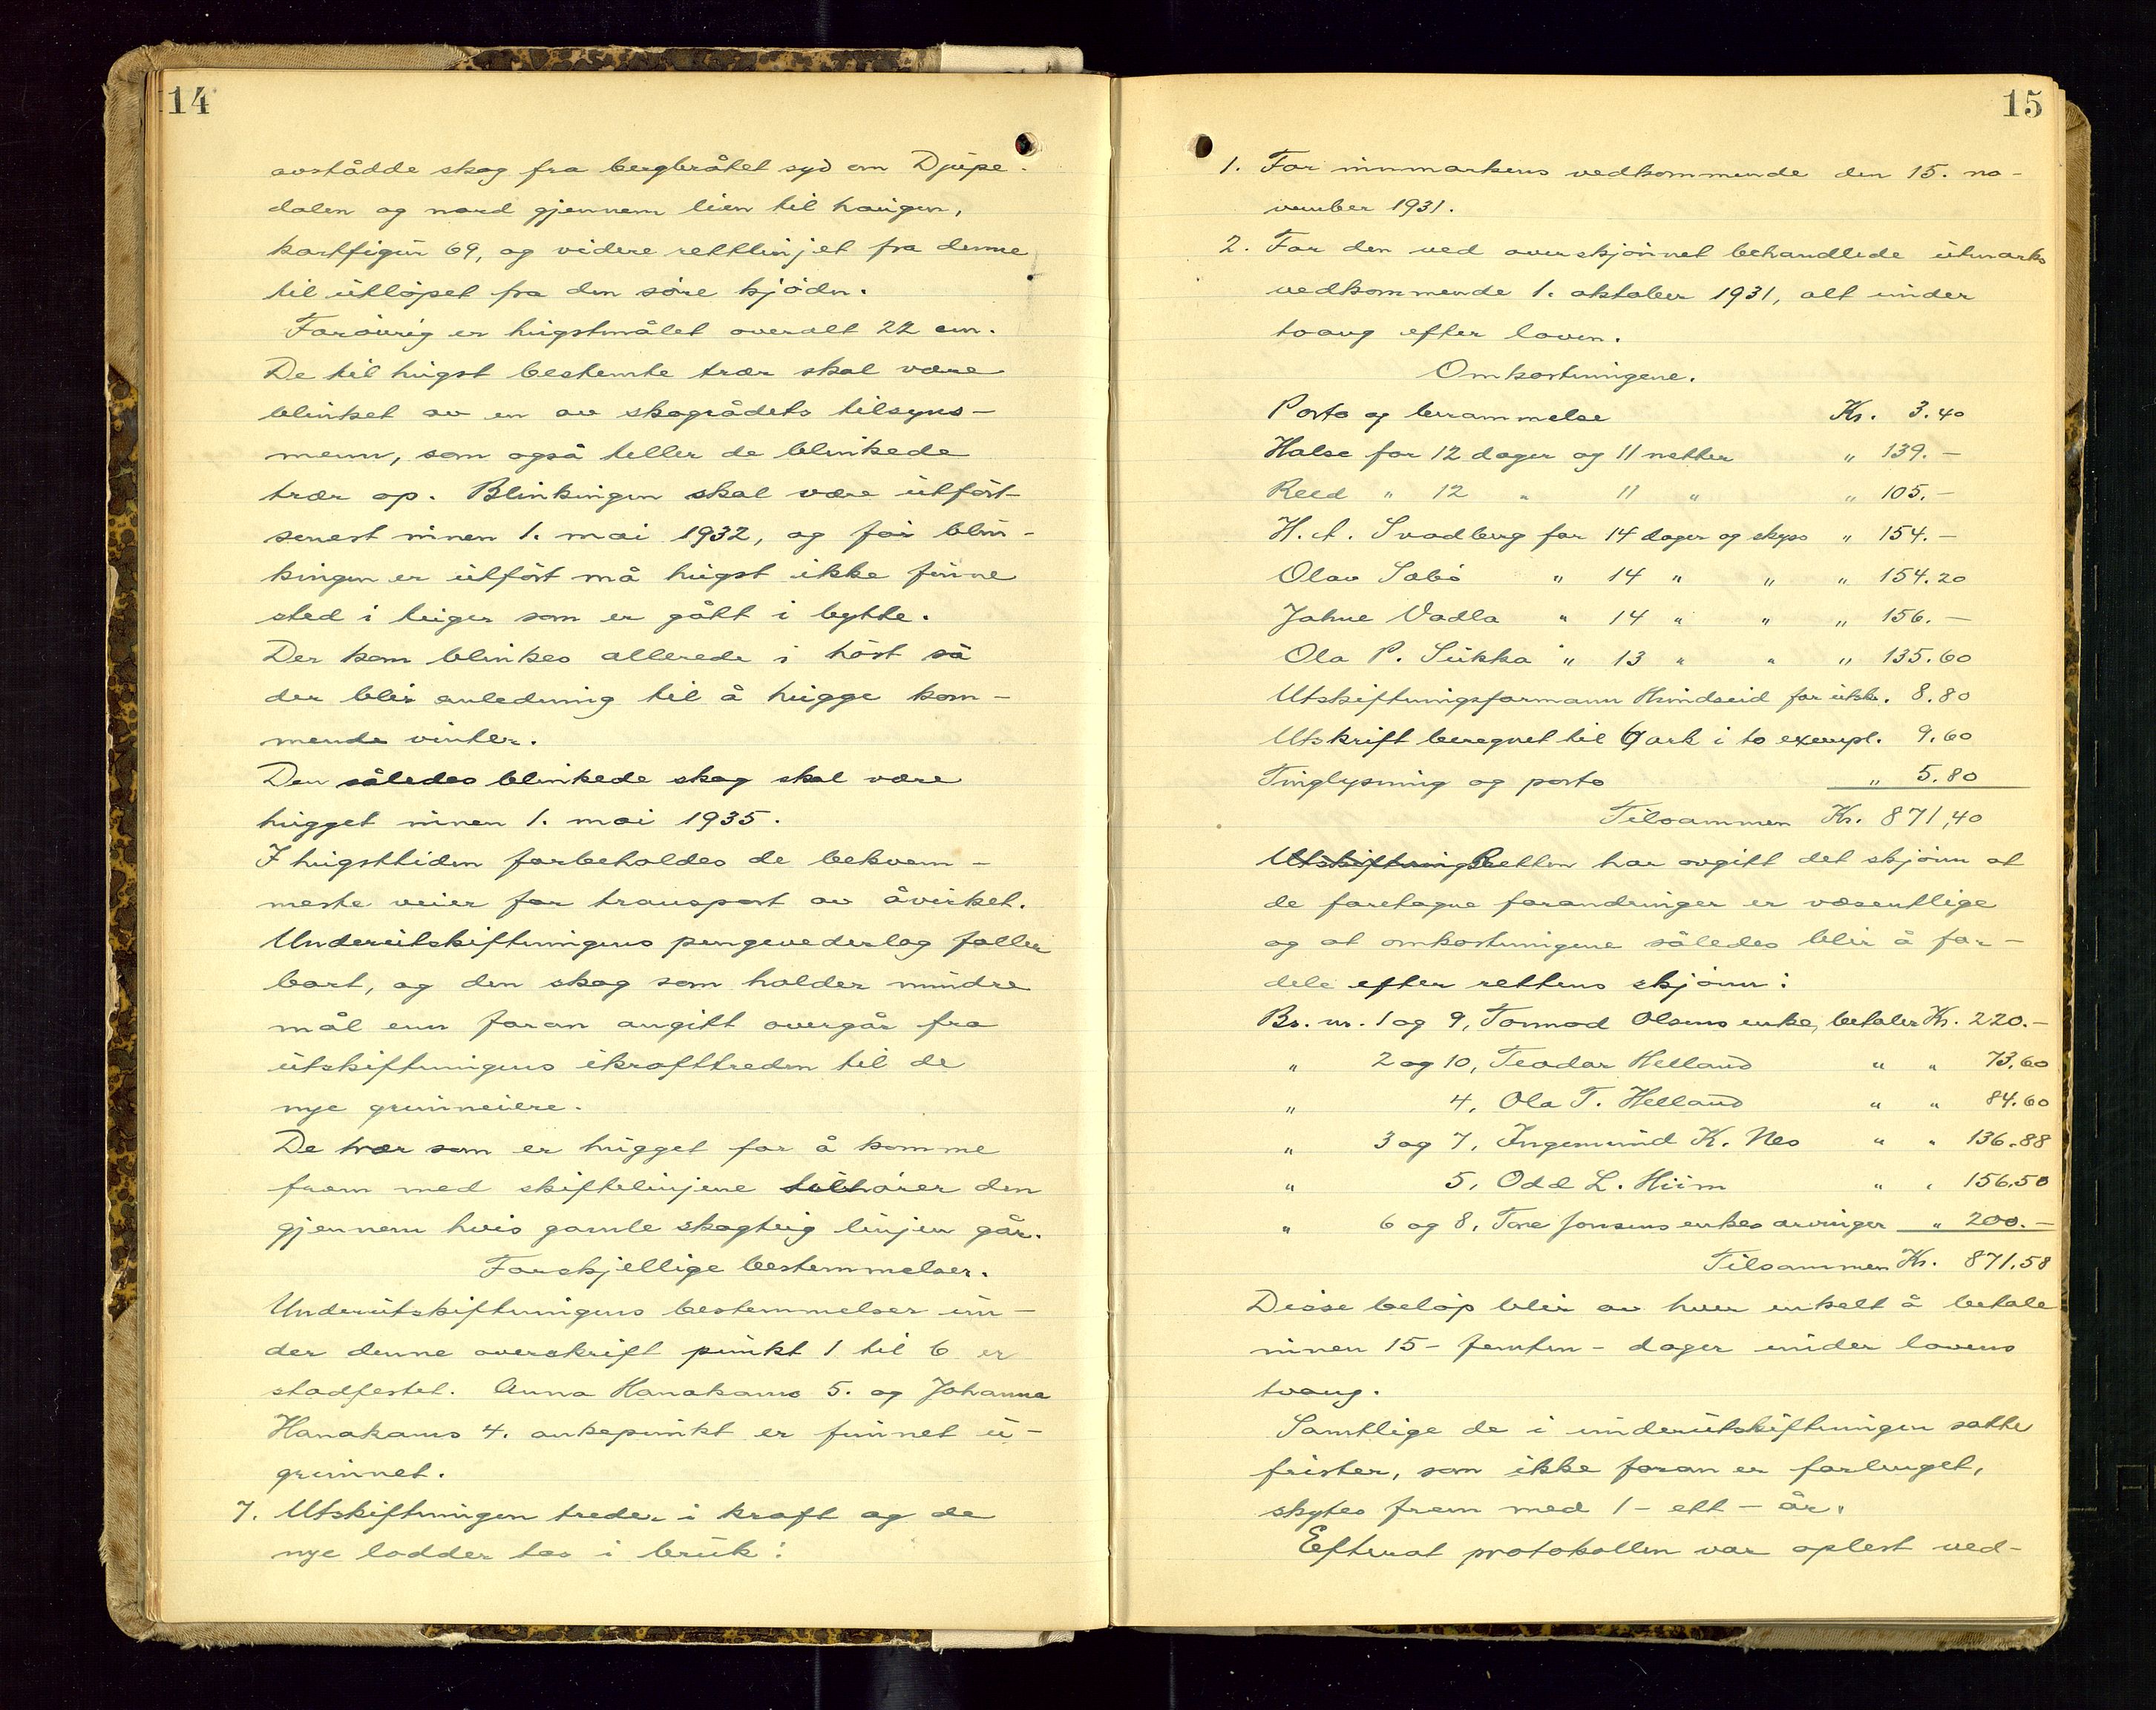 14
avstådde skog fra bergbråtet syd om Djupe-
dalen og nord gjennem lien til haugen,
kartfigur 69, og videre rettlinjet fra denne
til utløpet fra den søre kjødn.
Forøvrig er hugstmålet overalt 22 cm.
De til hugst bestemte trær skal være
blinket av en av skogrådets tilsyns-
menn, som også teller de blinkede
trær op. Blinkingen skal være utført
senest innen 1. mai 1932, og før blin-
kingen er utført må hugst ikke finne
sted i teiger som er gått i bytte.
Der kan blinkes allerede i høst så
der blir anledning til å hugge kom-
mende vinter.
Den således blinkede skog skal være
hugget innen 1. mai 1935.
I hugsttiden forbeholdes de bekvem-
meste veier for transport av åvirket.
Underutskiftningens pengevederlag faller
bort, og den skog som holder mindre
mål enn foran angitt overgår fra
utskiftningens ikrafttreden til de
nye grunneiere.
De trær som er hugget for å komme
frem med skiftelinjene tilhører den
gjennem hvis gamle skogteig linjen går.
Forskjellige bestemmelser.
Underutskiftningens bestemmelser un-
der denne overskrift punkt 1 til 6 er
stadfestet. Anna Hanakams 5. og Johanna
Hanakams 4. ankepunkt er funnet u-
grunnet.
7. Utskiftningen treder i kraft og de
nye lodder tas i bruk:
15
1. For innmarkens vedkommende den 15. no-
vember 1931.
2. For den ved overskjønnet behandlede utmarks
vedkommende 1. oktober 1931, alt under
tvang efter loven.
Omkostningene.
Porto og berammelse Kr. 3.40
Halse for 12 dager og 11 netter " 139.-
Reed " 12 " 11 " " 105.-
H. A. Svadberg for 14 dager og skyss " 154.-
Olav Sabø " 14 " " " 154.20
Johne Vadla " 14 " " " 156.-
Ola P. Sukka " 13 " " " 135.60
Utskiftningsformann Hundseid for utsk. 8.80
Utskrift beregnet til 6 ark i to exempl. 9.60
Tinglysning og porto " 5.80
Tilsammen Kr. 871,40
Utskiftnings Retten har avgitt det skjønn at
de foretagne forandringer er væsentlige
og at omkostningene således blir å for-
dele efter rettens skjønn:
Br. nr. 1 og 9, Tormod Olsens enke, betaler Kr. 220.-
" 2 og 10, Teodor Helland " " 73,60
" 4, Ola T. Helland " " 84.60
" 3 og 7, Ingemund K. Nes " " 136.88
" 5, Odd L. Hiim " " 156.50
" 6 og 8, Tore Jonsens enkes arvinger " 200.-
Tilsammen Kr. 871.58
Disse beløp blir av hver enkelt å betale
innen 15 - femten - dager under lovens
tvang.
Samtlige de i underutskiftningen satte
frister, som ikke foran er forlenget,
skytes frem med 1 - ett - år.
Efterat protokollen var oplest ved-